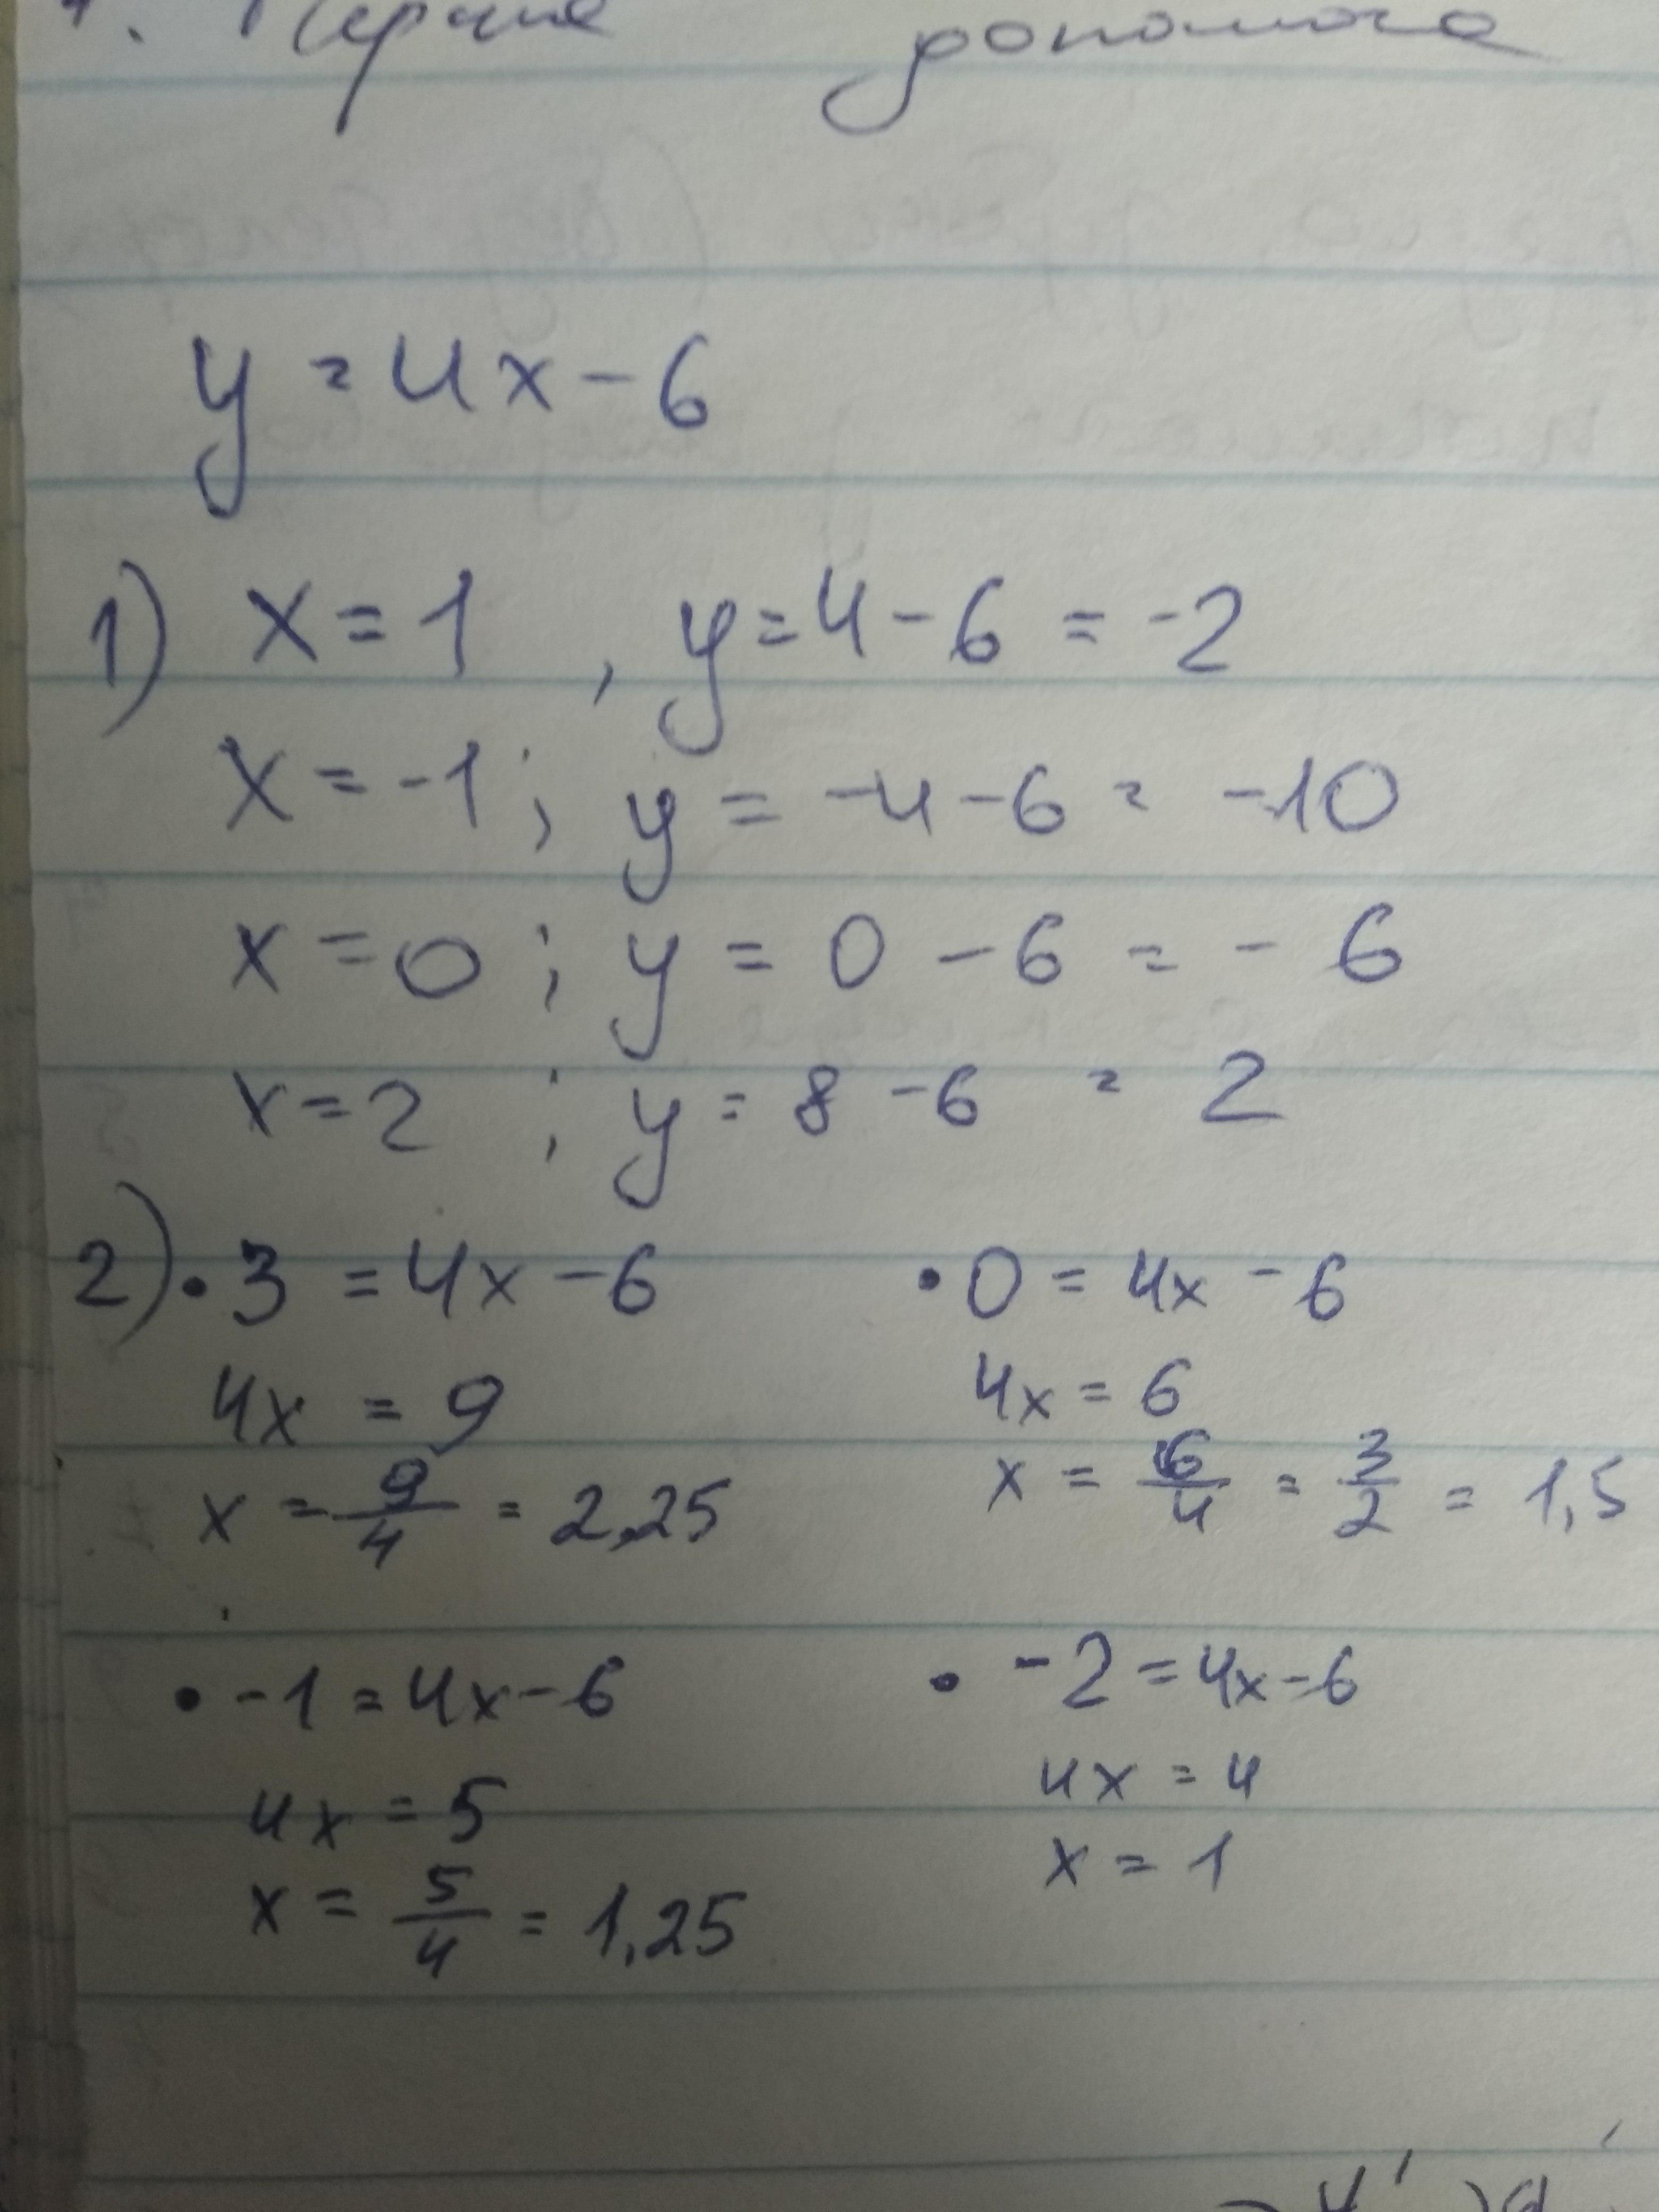 1. Перша допомога
y = 4x - 6
1) x = 1 , y = 4 - 6 = -2
x = -1 ; y = -4 - 6 = -10
x = 0 ; y = 0 - 6 = - 6
x = 2 ; y = 8 - 6 = 2
2) • 3 = 4x - 6
4x = 9
x = 9/4 = 2,25
• 0 = 4x - 6
4x = 6
x = 6/4 = 3/2 = 1,5
• -1 = 4x - 6
4x = 5
x = 5/4 = 1,25
• -2 = 4x - 6
4x = 4
x = 1